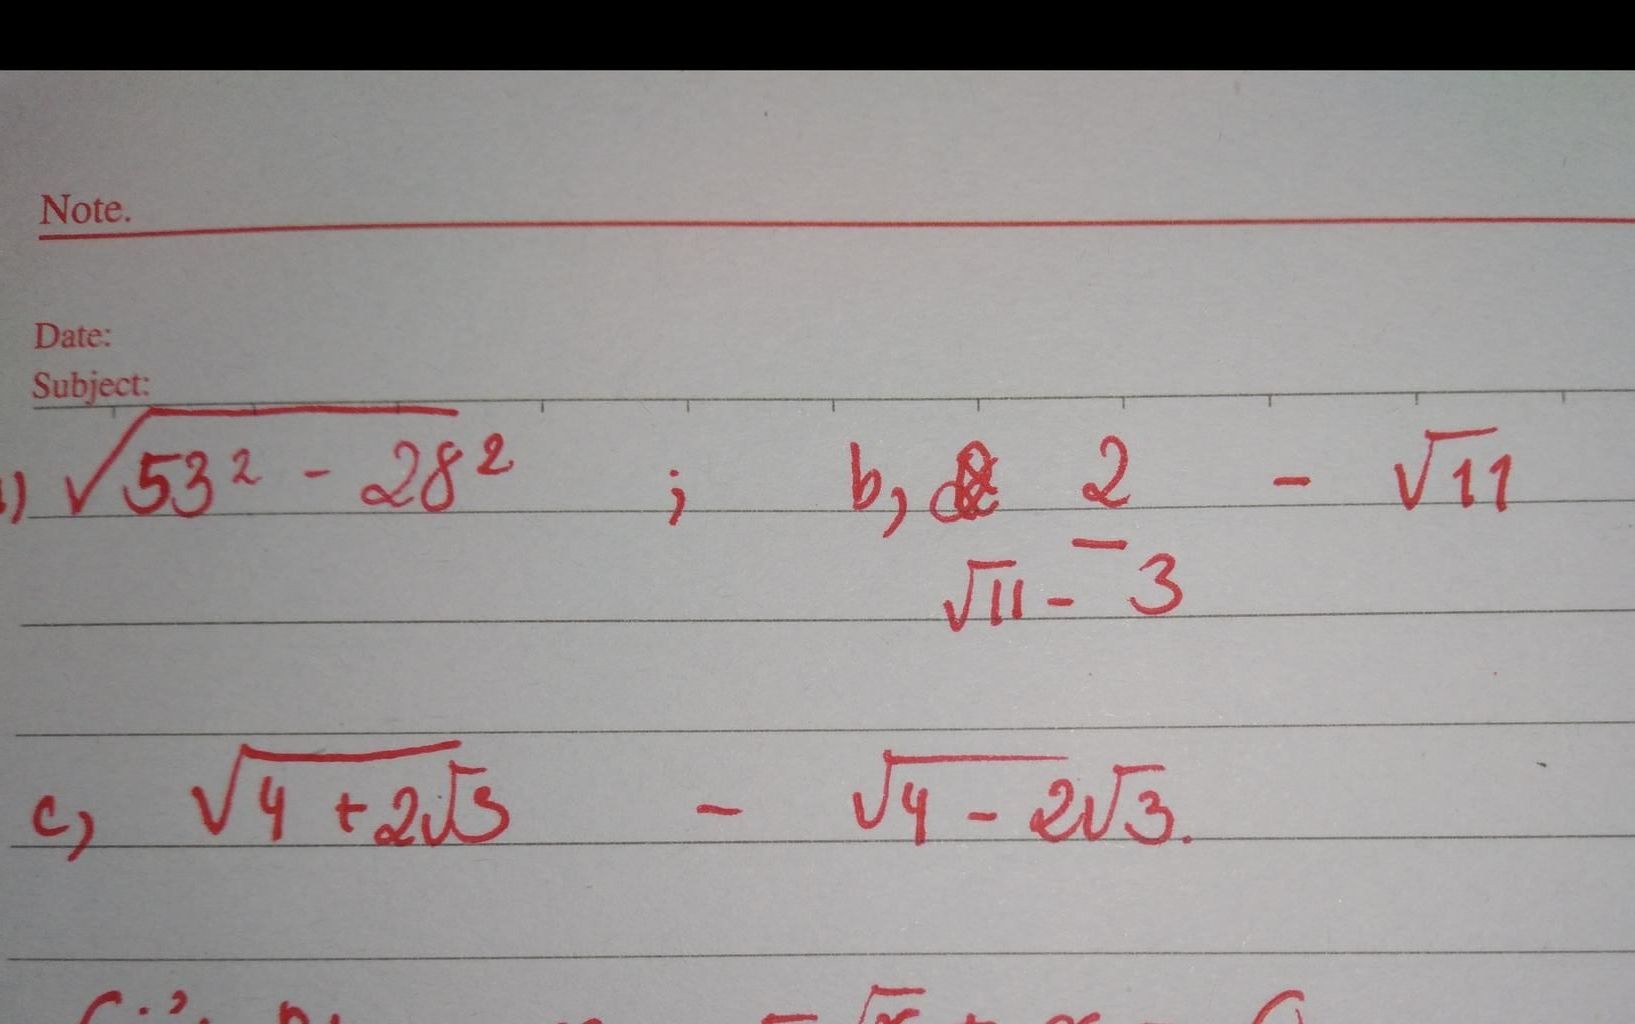 Note.
Date:
Subject:
√53² - 28² ; b, 2 - √11
√11 - 3
c) √4 + 2√3 - √4 - 2√3.